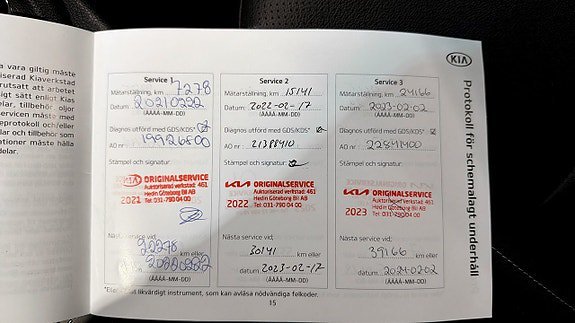 a vara giltig måste
iserad Kiaverkstad
rutsatt att arbetet
igt sätt enligt Kias
ler, tillbehör, oljor
ervicen måste med
eprotokoll och/eller
ar och tillbehör som
ationer måste hålla
delar.
KIA
Protokoll för schemalagt underhåll
Service 1
Mätarställning, km 7278
Datum: 20210222
(ÅÅÅÅ-MM-DD)
Diagnos utförd med GDS/KDS*
AO nr 19926800
Stämpel och signatur:
KIA ORIGINALSERVICE
Auktoriserad verkstad: 461
Hedin Göteborg Bil AB
2021 Tel 031-790 04 00
Nästa service vid:
22278 km eller
datum: 20220222
(ÅÅÅÅ-MM-DD)
Service 2
Mätarställning, km 15141
Datum: 2022-02-17
(ÅÅÅÅ-MM-DD)
Diagnos utförd med GDS/KDS*
AO nr 21388410
Stämpel och signatur:
KIA ORIGINALSERVICE
Auktoriserad verkstad: 461
Hedin Göteborg Bil AB
2022 Tel 031-790 04 00
Nästa service vid:
30141 km eller
datum: 2023-02-17
(ÅÅÅÅ-MM-DD)
Service 3
Mätarställning, km 24166
Datum: 2023-02-02
(ÅÅÅÅ-MM-DD)
Diagnos utförd med GDS/KDS*
AO nr 22841400
Stämpel och signatur:
KIA ORIGINALSERVICE
Auktoriserad verkstad: 461
Hedin Göteborg Bil AB
2023 Tel 031-790 04 00
Nästa service vid:
39166 km eller
datum: 2024-02-02
(ÅÅÅÅ-MM-DD)
*Eller annat likvärdigt instrument, som kan avläsa nödvändiga felkoder.
15